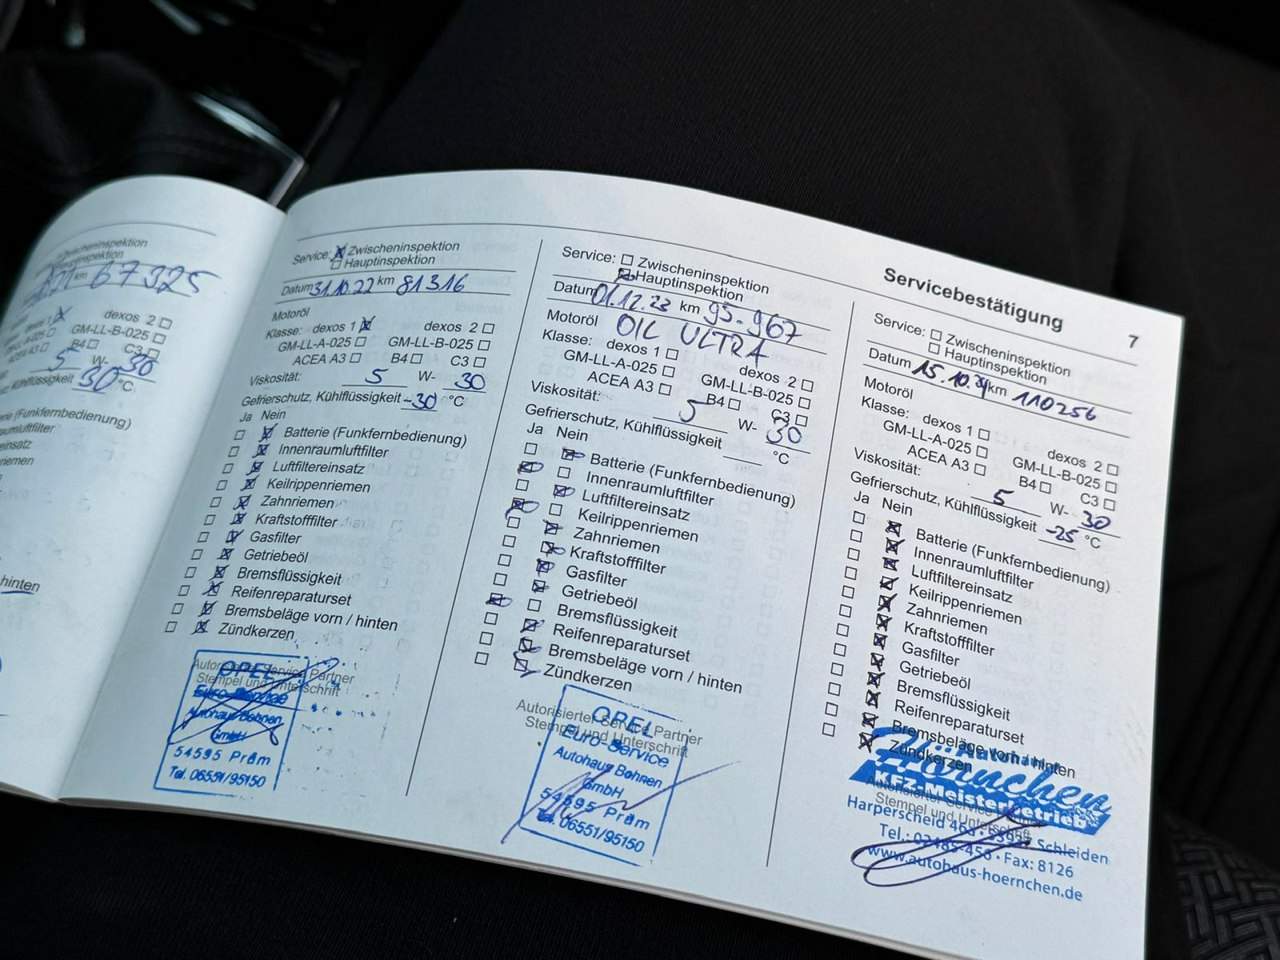 Zwischeninspektion
inspektion
km 67325
dexos 2
GM-LL-B-025
ACEA A3 B4 C3
5 W- 30
Kühlflüssigkeit 30 °C
(Funkfernbedienung)
hinten
Service: Zwischeninspektion
Hauptinspektion
Datum 31.10.22 km 81316
Motoröl
Klasse: dexos 1 dexos 2
GM-LL-A-025 GM-LL-B-025
ACEA A3 B4 C3
Viskosität: 5 W- 30
Gefrierschutz, Kühlflüssigkeit -30 °C
Ja Nein
Batterie (Funkfernbedienung)
Innenraumluftfilter
Luftfiltereinsatz
Keilrippenriemen
Zahnriemen
Kraftstofffilter
Gasfilter
Getriebeöl
Bremsflüssigkeit
Reifenreparaturset
Bremsbeläge vorn / hinten
Zündkerzen
Autorisierter Service Partner
Stempel und Unterschrift
OPEL
Euro-Service
Autohaus Bohnen
GmbH
54595 Prüm
Tel. 06551/95150
Service: Zwischeninspektion
Hauptinspektion
Datum 01.12.23 km 95-967
Motoröl OIL ULTRA
Klasse: dexos 1 dexos 2
GM-LL-A-025 GM-LL-B-025
ACEA A3 B4 C3
Viskosität: 5 W- 30
Gefrierschutz, Kühlflüssigkeit °C
Ja Nein
Batterie (Funkfernbedienung)
Innenraumluftfilter
Luftfiltereinsatz
Keilrippenriemen
Zahnriemen
Kraftstofffilter
Gasfilter
Getriebeöl
Bremsflüssigkeit
Reifenreparaturset
Bremsbeläge vorn / hinten
Zündkerzen
Autorisierter Service Partner
Stempel und Unterschrift
OPEL
Euro-Service
Autohaus Bohnen
GmbH
54595 Prüm
Tel. 06551/95150
Servicebestätigung 7
Service: Zwischeninspektion
Hauptinspektion
Datum 15.10.24 km 110256
Motoröl
Klasse: dexos 1 dexos 2
GM-LL-A-025 GM-LL-B-025
ACEA A3 B4 C3
Viskosität: 5 W- 30
Gefrierschutz, Kühlflüssigkeit -25 °C
Ja Nein
Batterie (Funkfernbedienung)
Innenraumluftfilter
Luftfiltereinsatz
Keilrippenriemen
Zahnriemen
Kraftstofffilter
Gasfilter
Getriebeöl
Bremsflüssigkeit
Reifenreparaturset
Bremsbeläge vorn / hinten
Zündkerzen
Autohaus
Hörnchen
KFZ-Meisterbetrieb
Autorisierter Service
Stempel und Unterschrift
Harperscheid Schleiden
Tel.: 02485-456 · Fax: 8126
www.autohaus-hoernchen.de